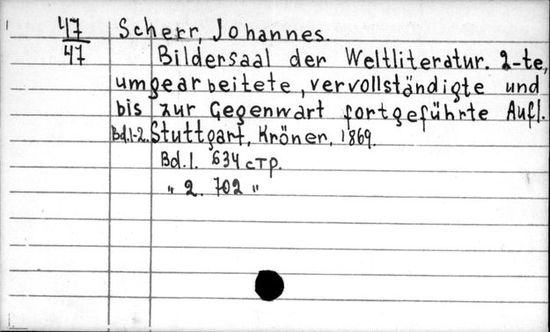 47 Scherr, Johannes.
47 Bildersaal der Weltliteratur. 2-te,
umgearbeitete, vervollständigte und
bis zur Gegenwart fortgeführte Aufl.
Bd.1-2. Stuttgart, Kröner, 1869.
Bd.1. 634 стр.
" 2. 702 "